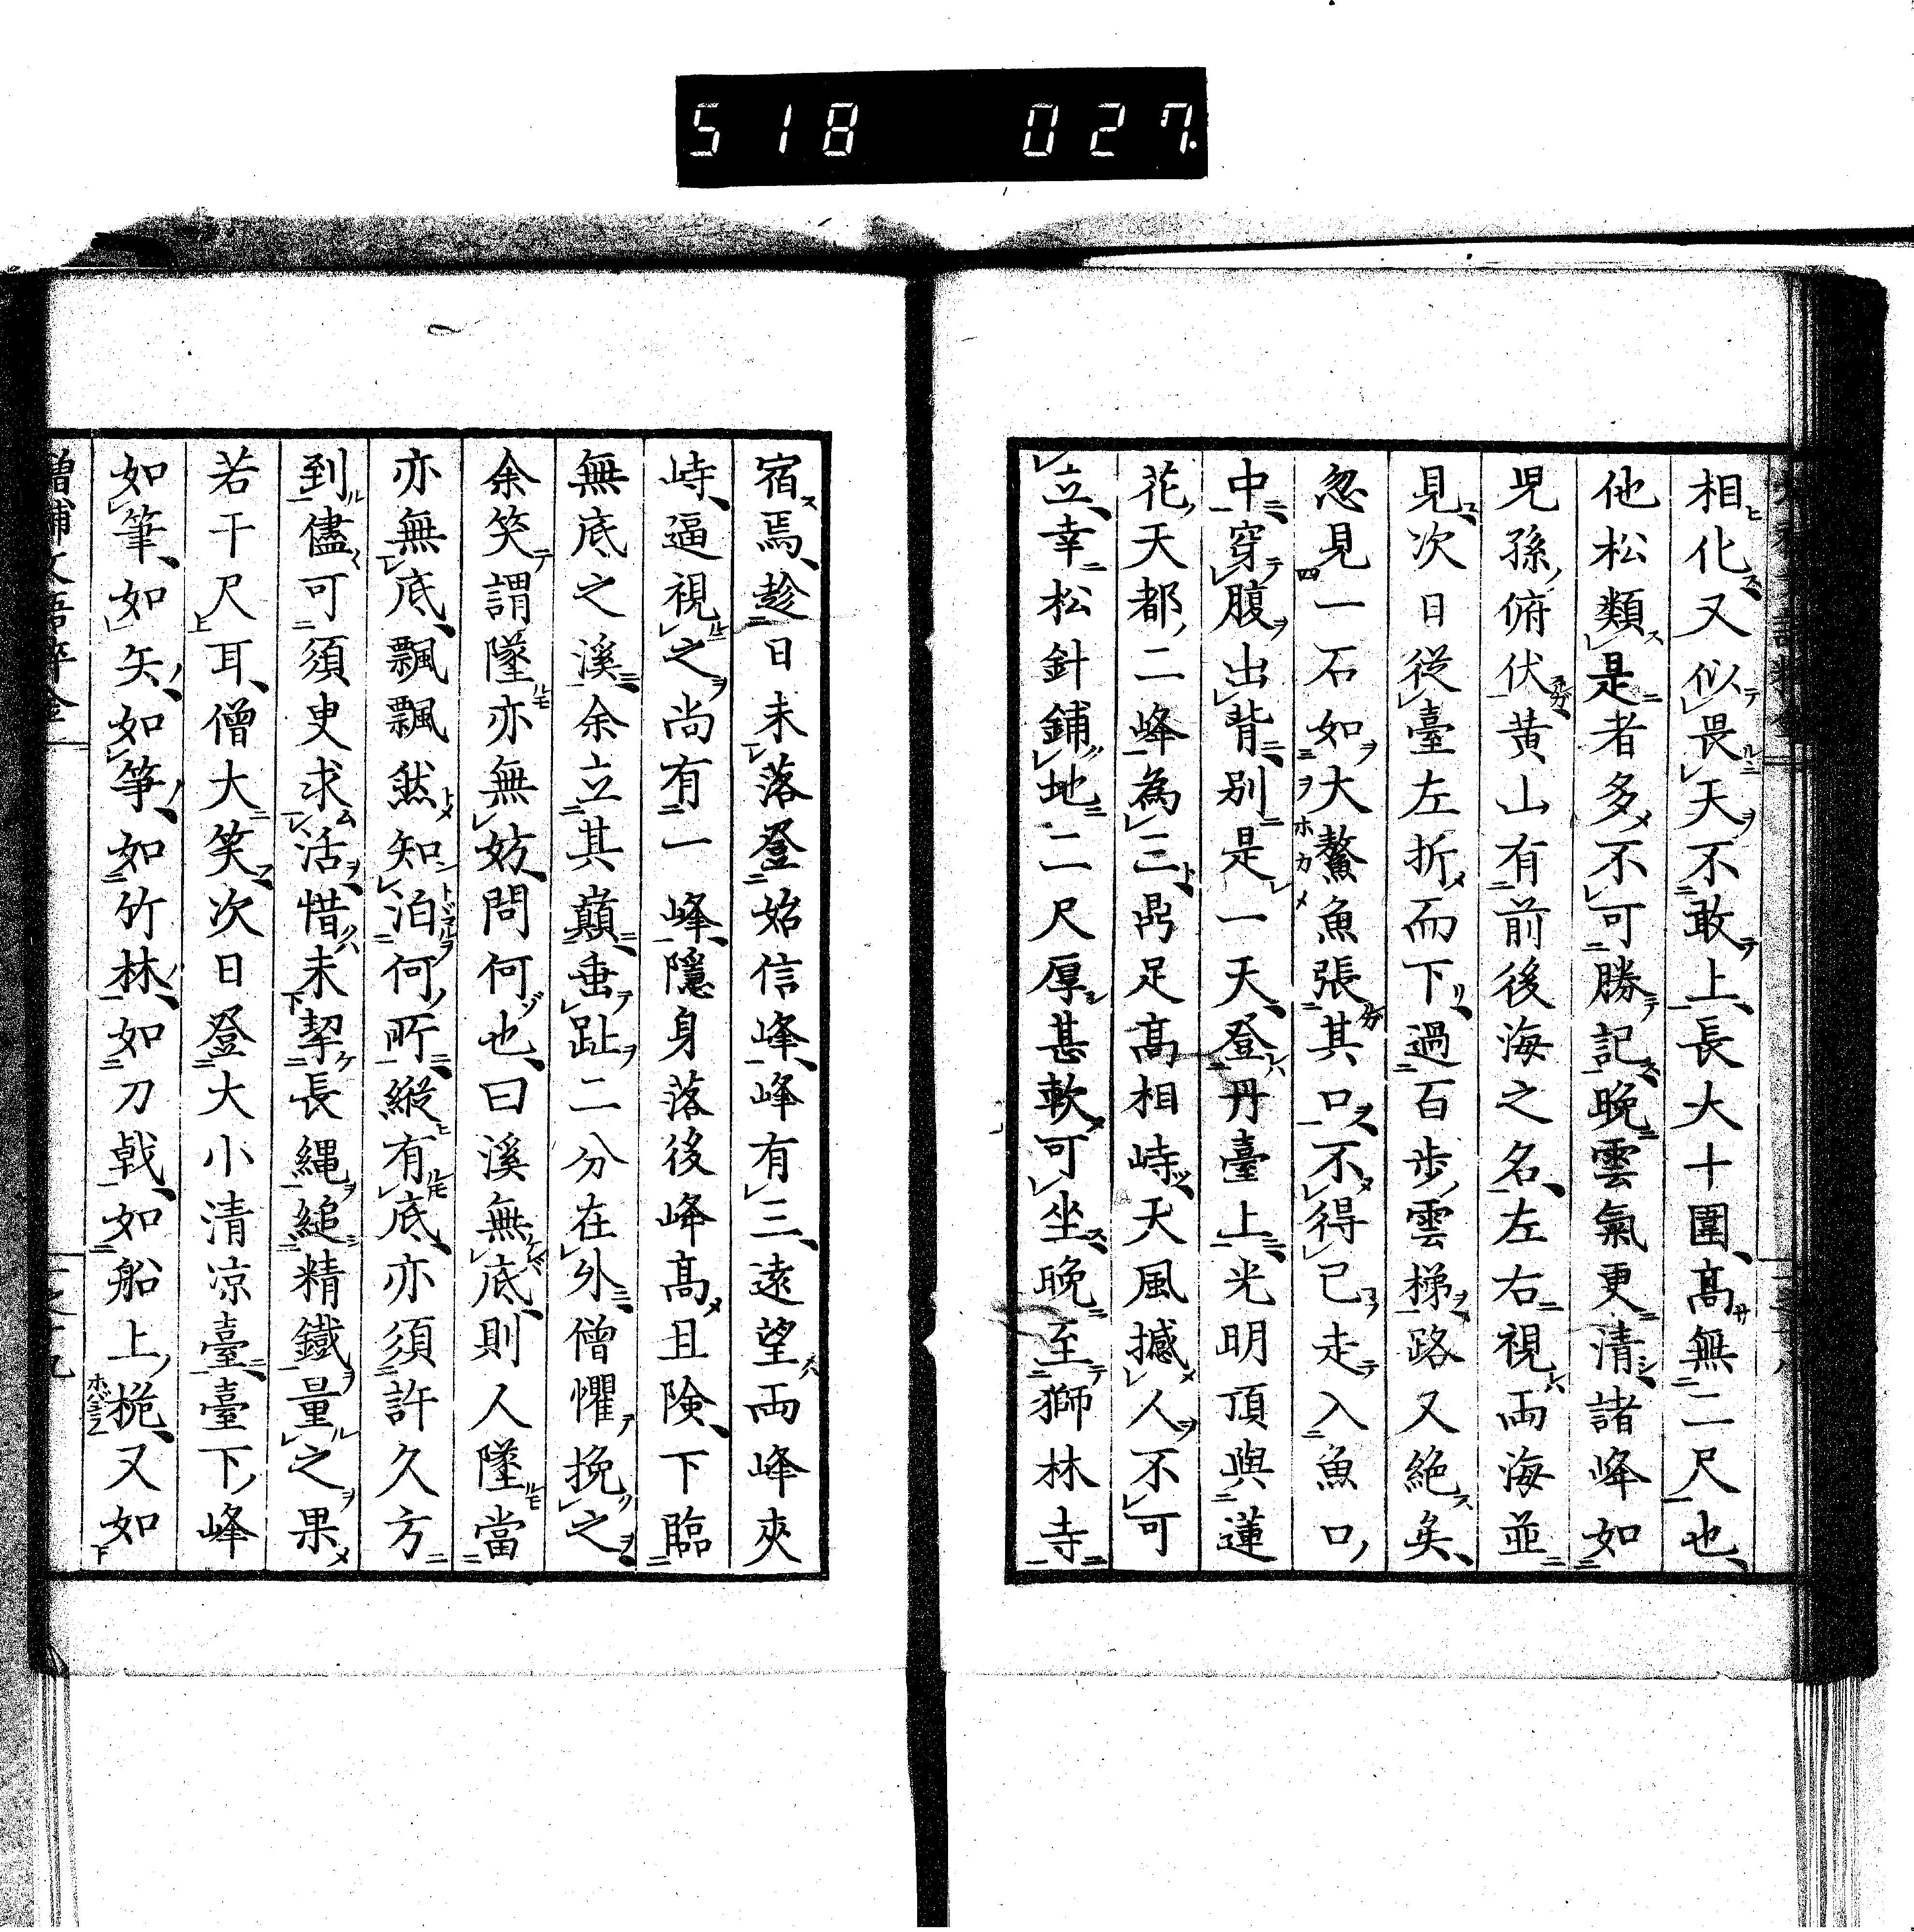 518 027
相化又似畏天不敢上長大十圍高無二尺也
他松類是者多不可勝記晩雲氣更清諸峰如
児孫俯伏黄山有前後海之名左右視両海並
見次日従臺左折而下過百歩雲梯路又絶矣
忽見一石如大鰲魚張其口不得已走入魚口
中穿腹出背別是一天登丹臺上光明頂與蓮
花天都二峰為三鼎足高相峙天風撼人不可
立幸松針鋪地二尺厚甚軟可坐晩至獅林寺
宿焉趁日未落登始信峰峰有三遠望両峰夾
峙逼視之尚有一峰隠身落後峰高且険下臨
無底之溪余立其巓垂趾二分在外僧懼挽之
余笑謂墜亦無妨問何也曰溪無底則人墜當
亦無底飄飄然知泊何所縦有底亦須許久方
到儘可須臾求活惜未挈長縄縋精鐵量之果
若干尺耳僧大笑次日登大小清凉臺臺下峰
如筆如矢如筝如竹林如刀戟如船上桅又如